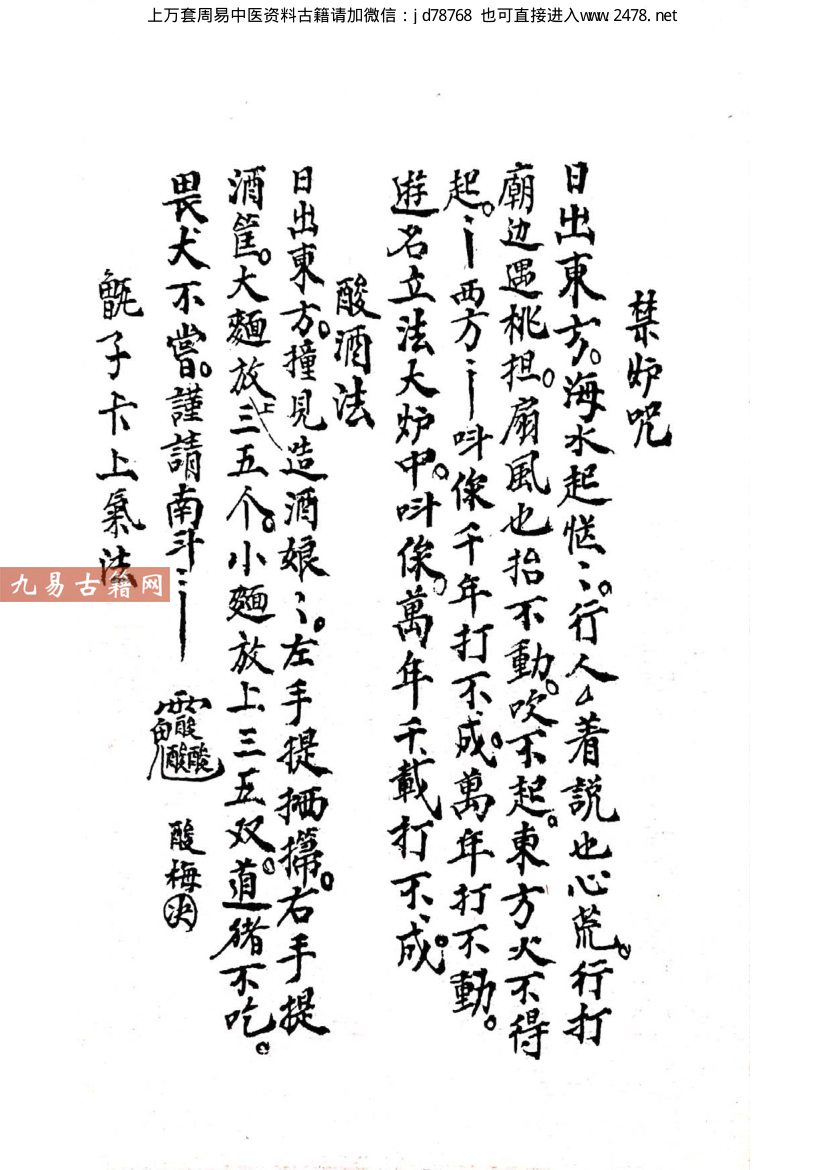 上万套周易中医资料古籍请加微信：jd78768 也可直接进入www.2478.net
禁炉咒
日出東方。海水起怅〻。行人亼着説也心荒。行打
廟边遇桃担。扇風也抬不動。吹不起。東方火不得
起。〻丨西方〻丨呌俫千年打不成。萬年打不動。
遊名立法大炉中。呌俫。萬年千載打不成。
酸酒法
日出東方。撞見造酒娘〻。左手提 右手提
酒筐。大麵放上三五个。小麵放上三五双。道猪不吃。
畏犬不嘗。謹請南斗〻丨 酸梅决
甑子上氣法
九易古籍网